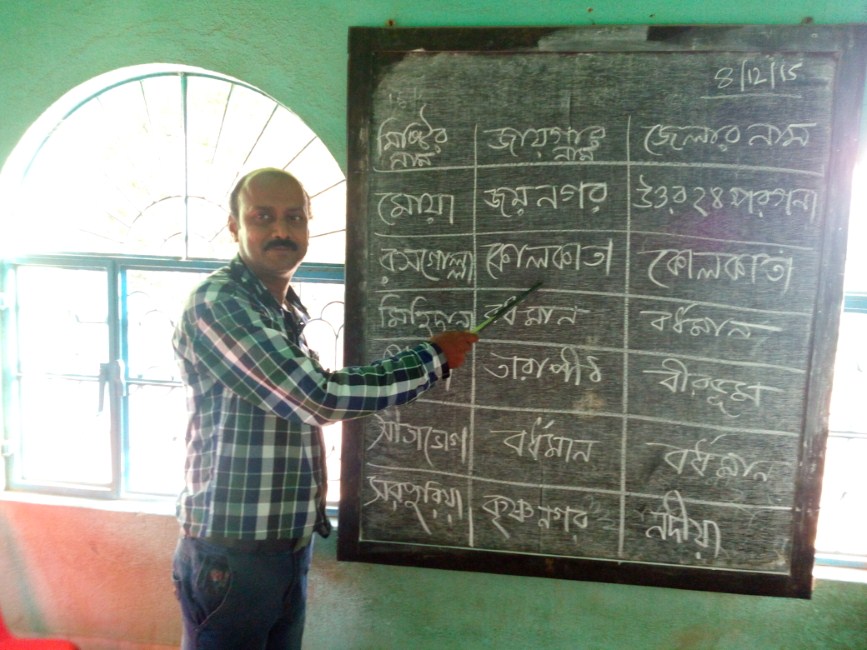 8/12/15
মিষ্টির নাম জায়গার নাম জেলার নাম
মোয়া জয়নগর উত্তর ২৪ পরগনা
রসগোল্লা কোলকাতা কোলকাতা
মিহিদানা বর্ধমান বর্ধমান
তারাপীঠ বীরভূম
সীতাভোগ বর্ধমান বর্ধমান
সরপুরিয়া কৃষ্ণনগর নদীয়া